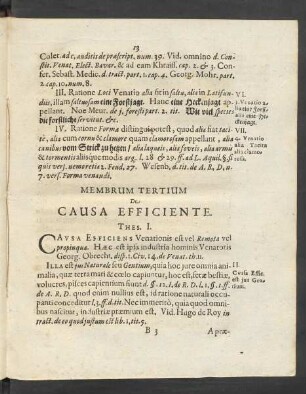 13
Coler. adc. auditis de præscript. num. 30. Vid. omnino d. Con-
stit. Venat. Elect. Bavar. & ad eam Khraiss. cap. 2. & 3. Con-
fer. Sebast. Medic. d. tract. part. 1. cap. 4. Georg. Mohr. part.
2. cap. 10. num. 8.
III. Ratione Loci Venatio alia fit in saltu, alia in Latifun-
diis, illam saltuosam eine Forstjagt. Hanc eine Heckinjagt ap-
pellant. Noe Meur. de j. forest. part. 2. tit. Wie vich
vic forstliche servitut. &c.
IV. Ratione Forma distingui potest, quod alia fiat taci-
te, alia cum cornu & clamore quam clamosam appellant, alia
canibus vom Strick zu hegen / alia laqueis, alia foveis, alia armis
& tormentis aliisque modis arg. l. 28 & 29. ff. ad L. Aquil. § si
quis ver, nemoretis 2. Feud. 27. Wesenb. d. tit. de A. R. D. n.
7. vers. Forma venandi.
VI.
VII.
Venatio
MEMBRUM TERTIUM
De
CAUSA EFFICIENTE.
THES. I.
CAUSA EFFICIENS Venationis est vel Remota vel
propinqua. Hæc est ipsa industria hominis Venatoris
Georg. Obrecht, disp. 1. Ctu. 14. de Venat. th. 11.
ILLA est jus Naturale seu Gentium, quia hoc jure omnia ani-
malia, quæ terra mari & cœlo capiuntur, hoc est, feræ bestiæ,
volucres, pisces capientium sunt d. ff. 12. i. de R. D. l. 1. §. 1. ff.
de A. R. D. quod enim nullius est, id ratione naturali occu-
panti conceditur l. 3. ff. d. tit. Nec immeritò, quia quod omni-
bus nascitur, industriæ præmium est. Vid. Hugo de Roy in
tract. de eo quod justum est lib. 1. tit. 5.
II.
Causa Effic.
est jus Gen-
tium.
B 3
A præ-